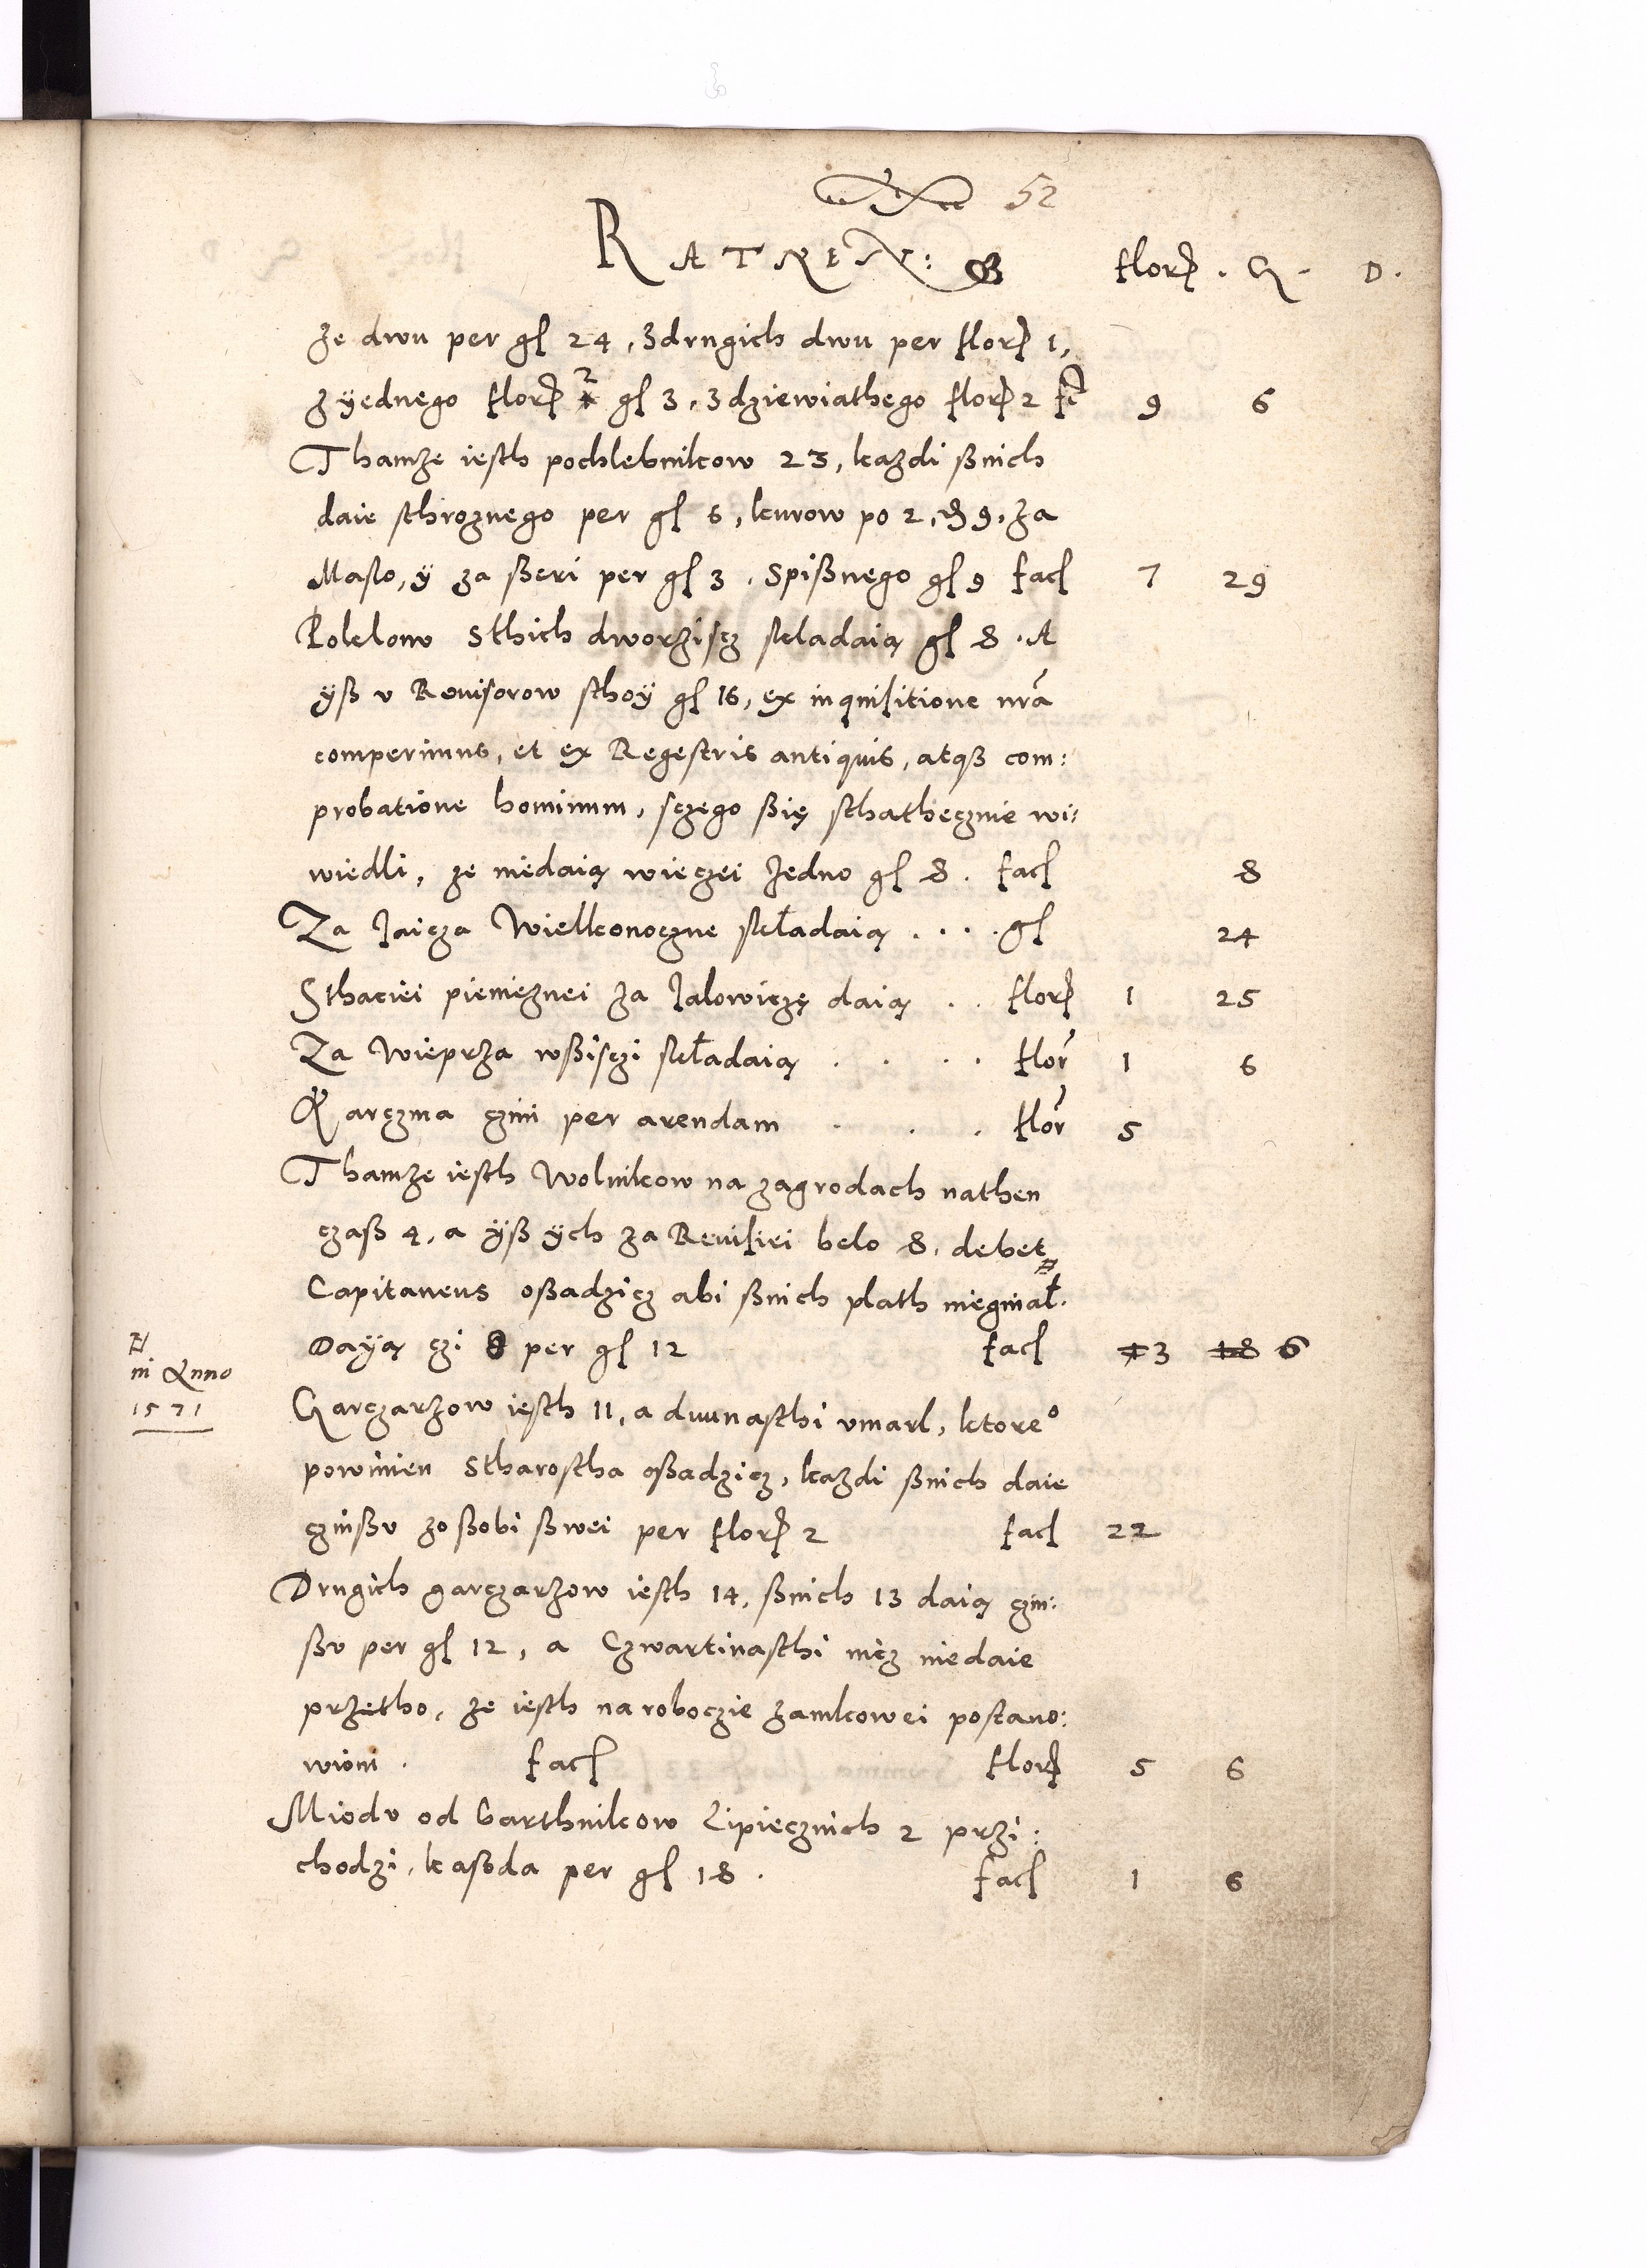 52
RATNEN: flor. G. D.
ze dwu per gl 24, z drugich dwu per flor 1,
z yednego flor 2 gl 3, z dziewiathego flor 2 fct 9 6
Thamze iesth pochlebnikow 23, kazdi ßnich
daie sthroznego per gl 6, kurow po 2, d 9, za
Maslo, ÿ za ßeri per gl 3. Spißnego gl 9 facl 7 29
Kolkow Sthich dworzisz skladaią gl 8. A
ÿß v Revisorow sthoÿ gl 16, ex inquisitione nra
comperimus, et ex Regestris antiquis, atqз com:
probatione hominum, sczego ßię sthathecznie wi:
wiedli, ze niedaią wieczei Jedno gl 8. facl 8
Za Jaicza Wielkonoczne składaią . . . . gl 24
Sthaciei pienieznei za Jalowiczę daią . . flor 1 25
Za Wieprza wßisczi składaią . . . . flor 1 6
Karczma czini per arendam . . . flor 5
Thamze iesth Wolnikow na zagrodach nathen
czaß 4, a ÿß ÿch za Revisiei belo 8, debet
Capitaneus oßadzicz abi ßnich plath nieginał.
Dayą czi 8 per gl 12 facl 1 3 18 6
in Anno
1571
Garczarzow iesth 11, a dwunasthi vmarl, ktoreo
powinien Stharostha oßadzicz, kazdi ßnich daie
czinßv zoßobi ßwei per flor 2 facl 22
Drugich garczarzow iesth 14, ßnich 13 daią czin:
ßv per gl 12, a Czwartinasthi nicz niedaie
przetho, ze iesth na roboczie zamkowei postano:
wioni. facl flor 5 6
Miodv od barthnikow Lipiecznich 2 przi:
chodzi, kaßda per gl 18. facl 1 6